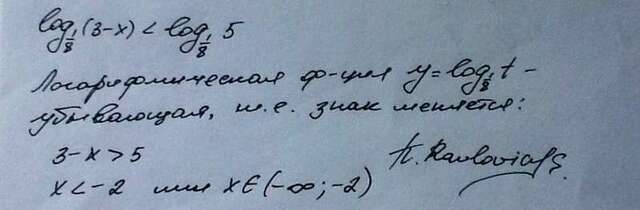 log₁/₈(3-x) < log₁/₈ 5
Логарифмическая ф-ция y=log₁/₈ t -
убывающая, т.е. знак меняется:
3-x>5
x<-2 или x∈(-∞;-2)